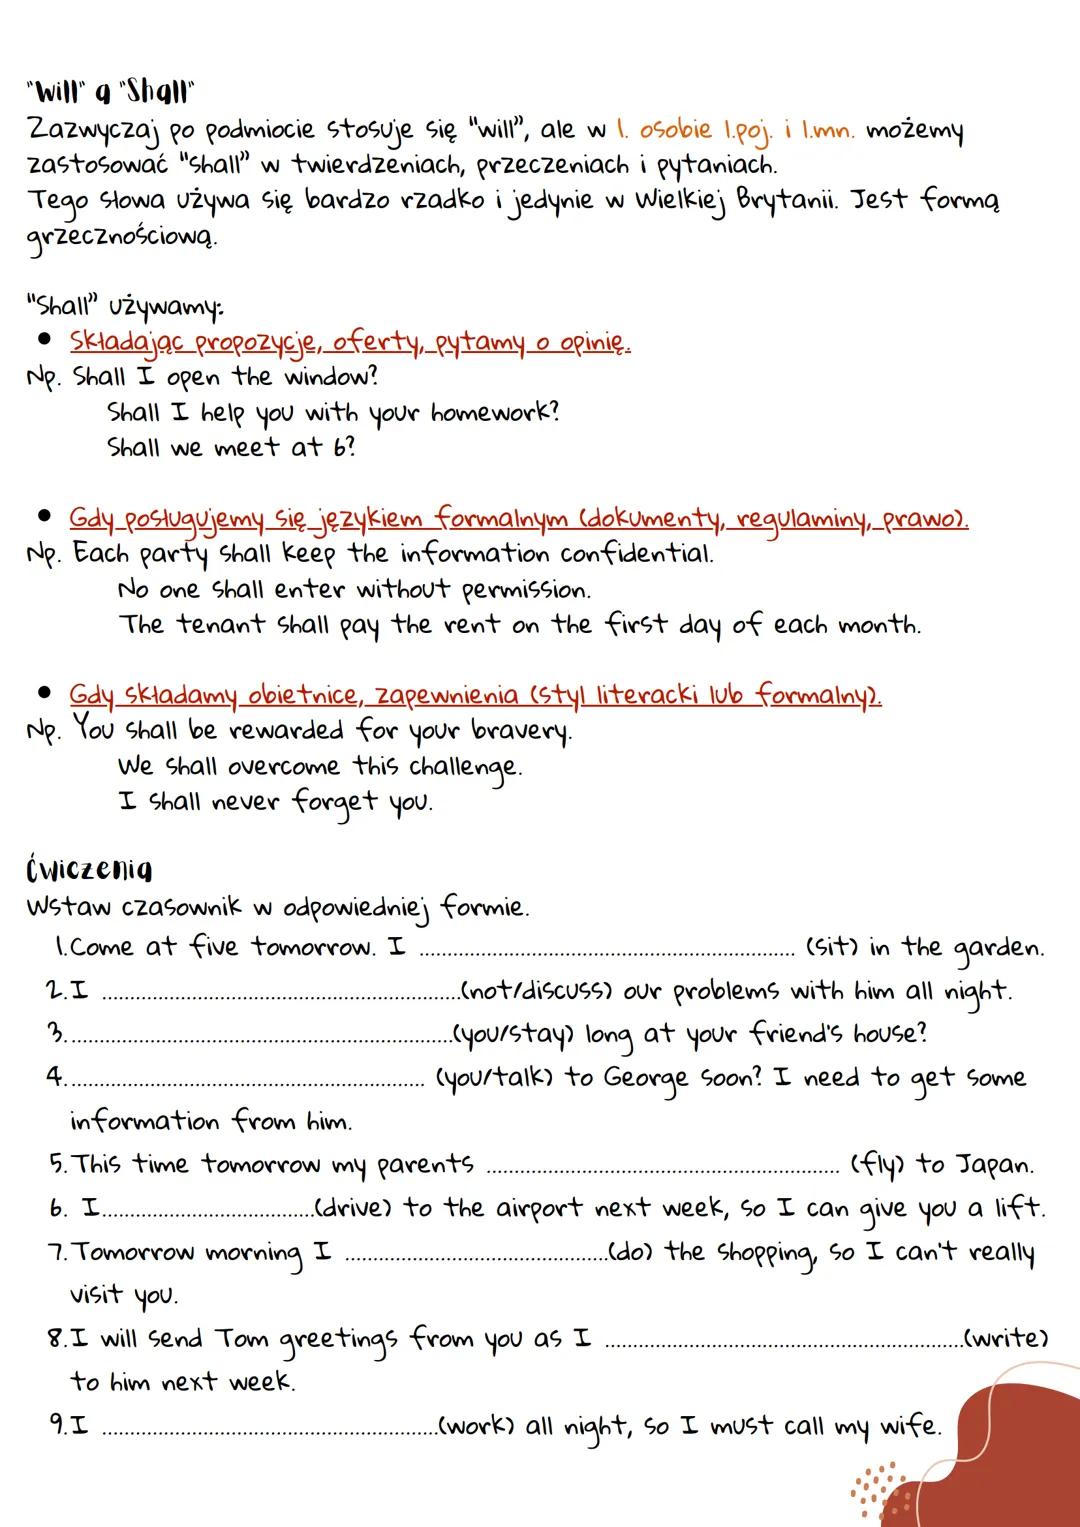 "Will" a "Shall"
Zazwyczaj po podmiocie stosuje się "will", ale w 1. osobie l.poj. i l.mn. możemy
zastosować "shall" w twierdzeniach, przeczeniach i pytaniach.
Tego słowa używa się bardzo rzadko i jedynie w Wielkiej Brytanii. Jest formą
grzecznościową.
"Shall" używamy:
• Składając propozycje, oferty, pytamy o opinię.
Np. Shall I open the window?
Shall I help you with your homework?
Shall we meet at 6?
• Gdy posługujemy się językiem formalnym (dokumenty, regulaminy, prawo).
Np. Each party shall keep the information confidential.
No one shall enter without permission.
The tenant shall pay the rent on the first day of each month.
• Gdy składamy obietnice, zapewnienia (styl literacki lub formalny).
Np. You shall be rewarded for your bravery.
We shall overcome this challenge.
I shall never forget you.
Ćwiczenia
Wstaw czasownik w odpowiedniej formie.
1. Come at five tomorrow. I .................................................. (sit) in the garden.
2. I ..................................................(not/discuss) our problems with him all night.
3. ..................................................(you/stay) long at your friend's house?
4. .................................................. (you/talk) to George soon? I need to get some
information from him.
5. This time tomorrow my parents .................................................. (fly) to Japan.
6. I..............................(drive) to the airport next week, so I can give you a lift.
7. Tomorrow morning I ........................................(do) the shopping, so I can't really
visit you.
8. I will send Tom greetings from you as I ..................................................(write)
to him next week.
9. I ..................................................(work) all night, so I must call my wife.